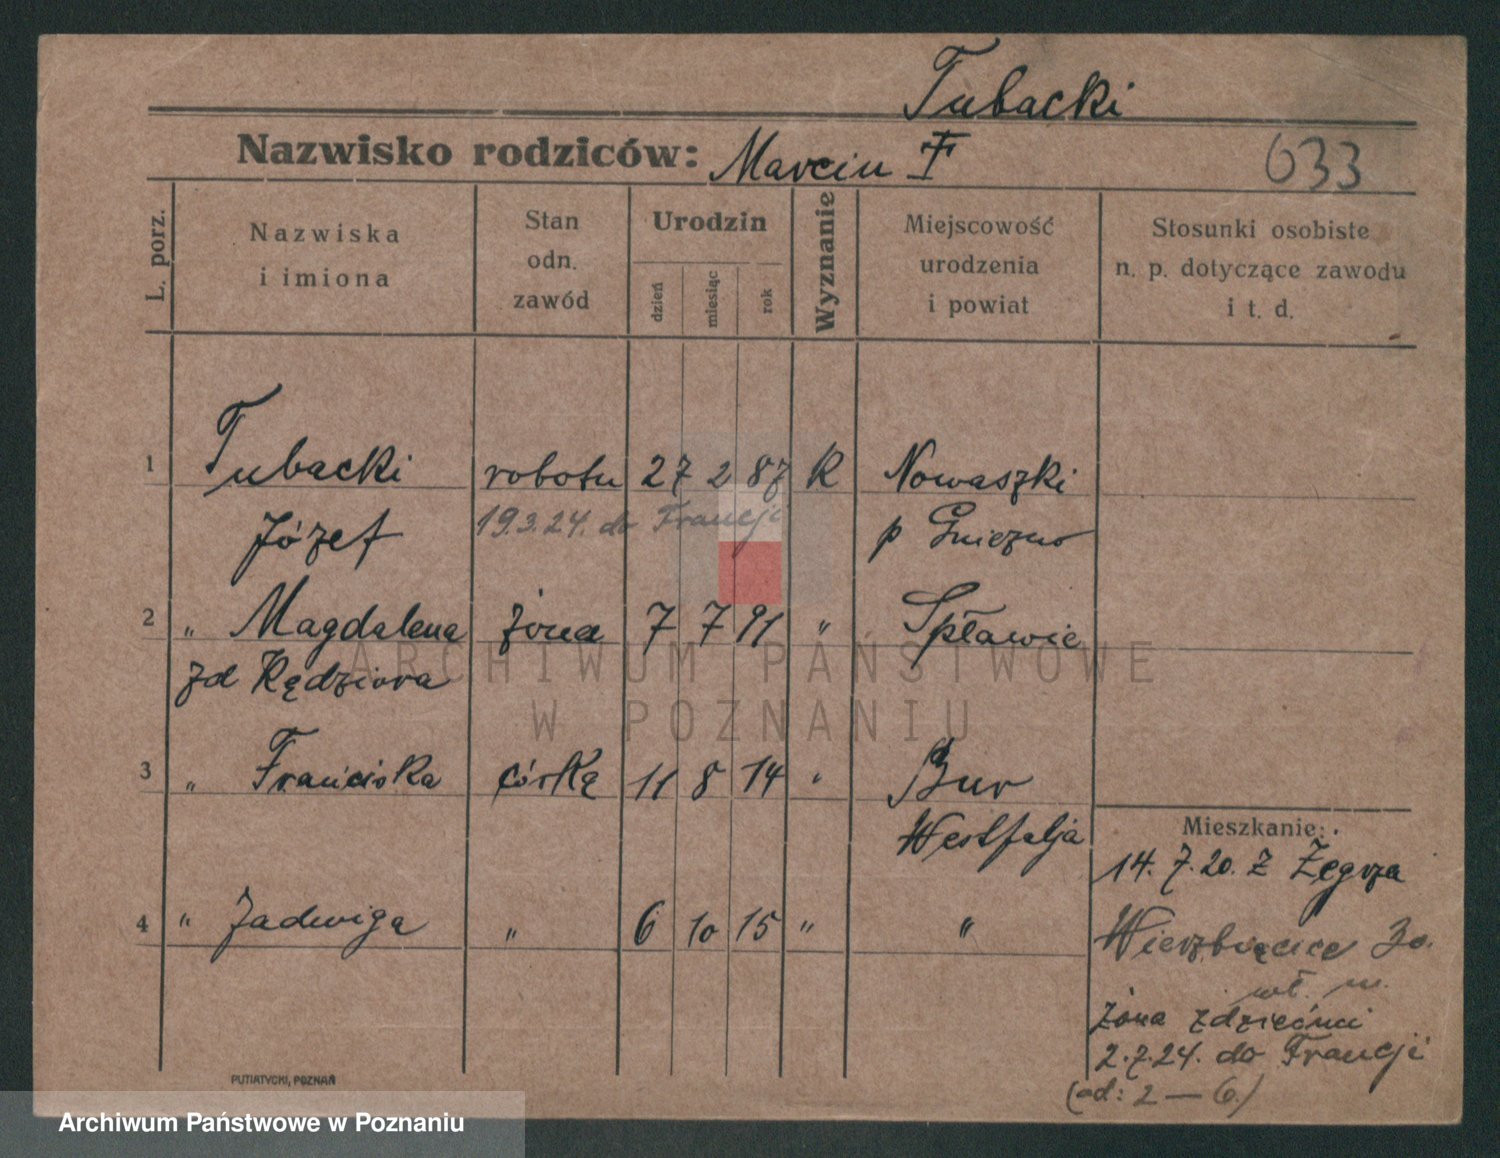 Tubacki
Nazwisko rodziców: Marcin T
633
L. porz.
Nazwiska i imiona
Stan odn. zawód
Urodzin
dzień
miesiąc
rok
Wyznanie
Miejscowość urodzenia i powiat
Stosunki osobiste n. p. dotyczące zawodu i t. d.
1 Tubacki robotn 27 2 87 R Nowaszki
Józef 19.3.24. do Francji p Gniezno
2 „ Magdalena żona 7 7 91 „ Spławie
zd Kędziora
3 „ Franciska córka 11 8 14 „ Bur
Westfalja
Mieszkanie:
14.7.20. z Żegrza
4 „ Jadwiga „ 6 10 15 „ „
Wierzbięcice 30.
wł. m.
żona z dziećmi
2.7.24. do Francji
(od: 2 — 6.)
PUTIATYCKI, POZNAŃ
ARCHIWUM PAŃSTWOWE
W POZNANIU
Archiwum Państwowe w Poznaniu